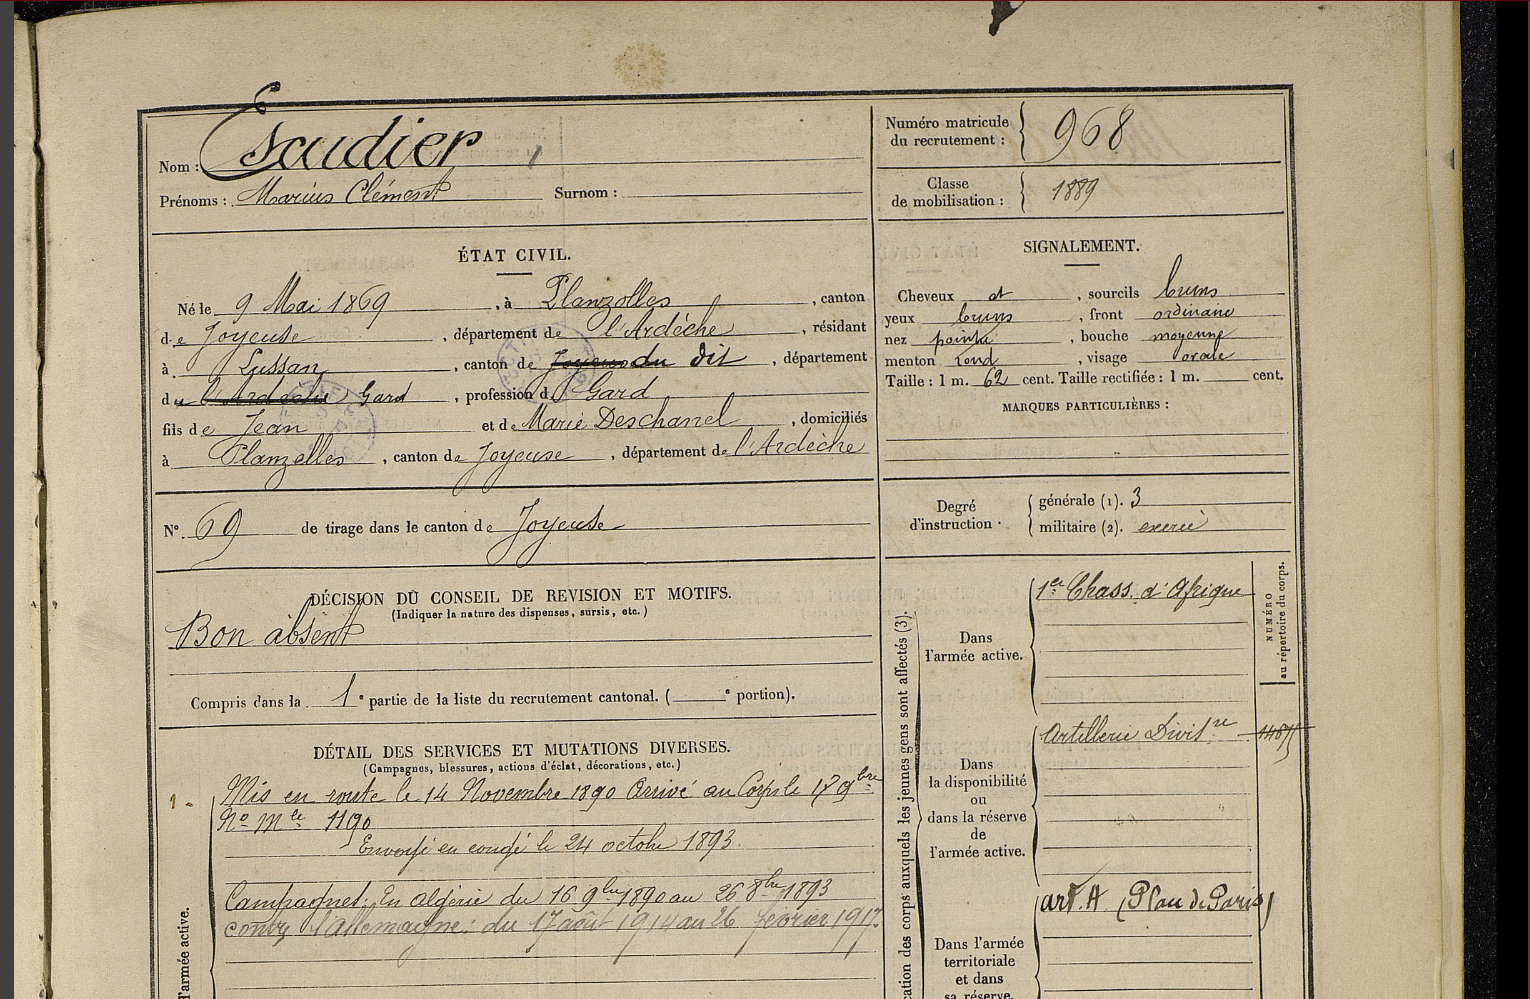 Nom : Escudier
Prénoms : Marius Clément Surnom :
Numéro matricule du recrutement : 968
Classe de mobilisation : 1889
ÉTAT CIVIL.
Né le 9 Mai 1869, à Planzolles, canton
de Joyeuse, département de l'Ardèche, résidant
à Lussan, canton de Joyeuse du dit, département
du l'Ardèche Gard, profession d Gard
fils de Jean et de Marie Deschanel, domiciliés
à Planzelles, canton de Joyeuse, département de l'Ardèche
N° 69 de tirage dans le canton de Joyeuse
SIGNALEMENT.
Cheveux et, sourcils bruns
yeux bruns, front ordinaire
nez pointu, bouche moyenne
menton rond, visage ovale
Taille : 1 m. 62 cent. Taille rectifiée : 1 m. cent.
MARQUES PARTICULIÈRES :
Degré d'instruction. générale (1). 3
militaire (2). exercé
DÉCISION DU CONSEIL DE REVISION ET MOTIFS.
(Indiquer la nature des dispenses, sursis, etc.)
Bon absent
Compris dans la 1e partie de la liste du recrutement cantonal. ( e portion).
DÉTAIL DES SERVICES ET MUTATIONS DIVERSES.
(Campagnes, blessures, actions d'éclat, décorations, etc.)
1.- Mis en route le 14 Novembre 1890 Arrivé au Corps le 17 9bre
No Mle 1190
Envoyé en congé le 24 octobre 1893.
Campagnes: En algérie du 16 9bre 1890 au 26 8bre 1893
contre l'allemagne: du 17 août 1914 au 26 février 1917.
l'armée active.
cation des corps auxquels les jeunes gens sont affectés (3).
NUMÉRO
au répertoire du corps.
Dans
l'armée active.
1er Chass. d'Afrique
Dans
la disponibilité
ou
dans la réserve
de
l'armée active.
Artillerie Divisre
Dans l'armée
territoriale
et dans
sa réserve.
art. A (Place de Paris)